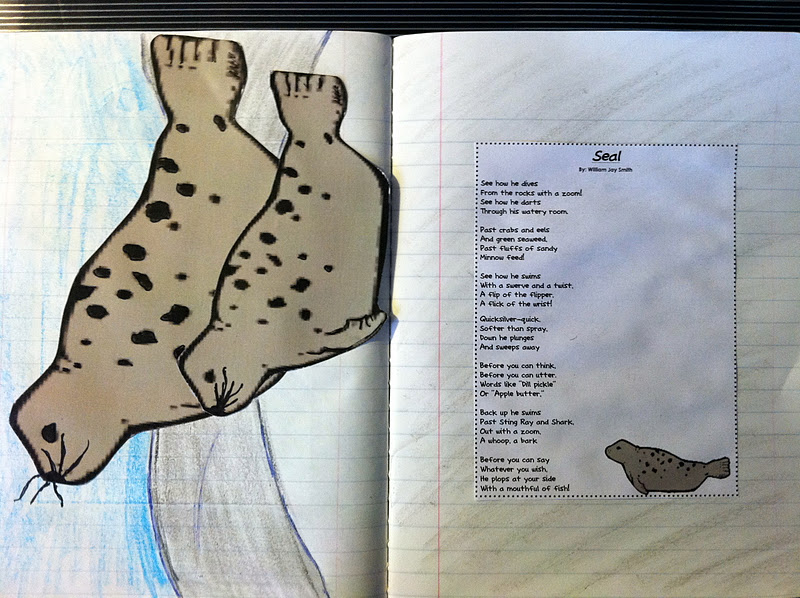 Seal
By: William Jay Smith
See how he dives
From the rocks with a zoom!
See how he darts
Through his watery room.
Past crabs and eels
And green seaweed,
Past fluffs of sandy
Minnow feed!
See how he swims
With a swerve and a twist,
A flip of the flipper,
A flick of the wrist!
Quicksilver-quick,
Softer than spray,
Down he plunges
And sweeps away
Before you can think,
Before you can utter,
Words like "Dill pickle"
Or "Apple butter,"
Back up he swims
Past Sting Ray and Shark,
Out with a zoom,
A whoop, a bark
Before you can say
Whatever you wish,
He plops at your side
With a mouthful of fish!